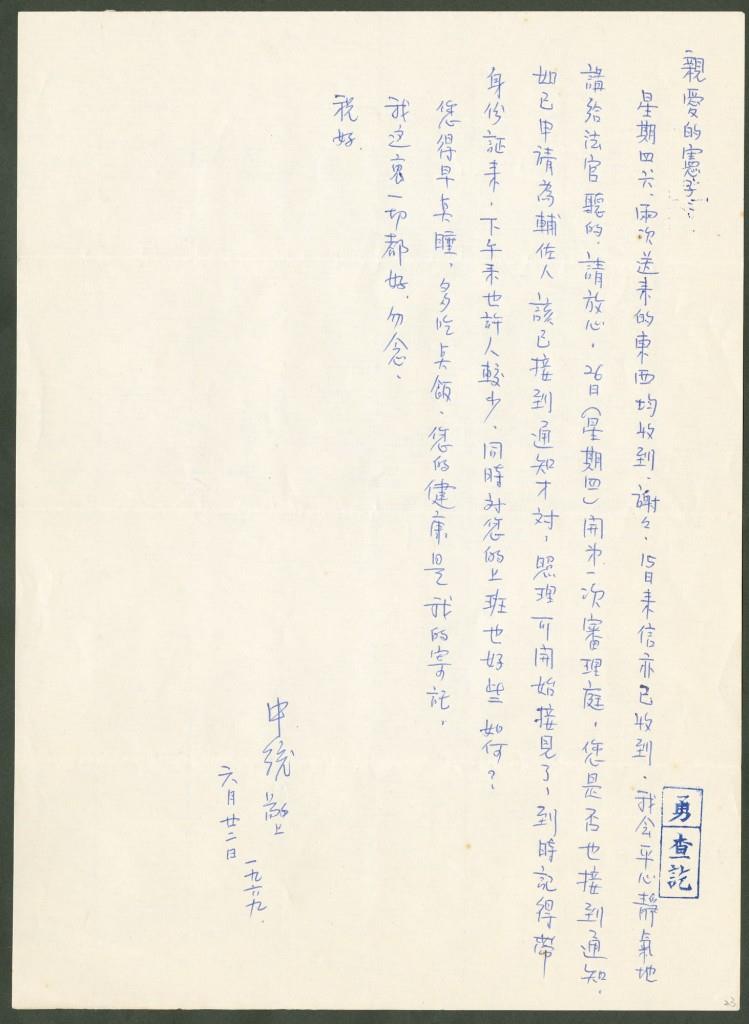 親愛的憲子：
星期四、六兩次送来的東西均收到，謝々，15日来信亦已收到，我会平心靜氣地
講給法官聽的，請放心。26日（星期四）開第一次審理庭，您是否也接到通知。
如已申請為輔佐人該已接到通知才对，照理可開始接見了，到時記得帶
身份証来，下午来也許人較少，同時对您的上班也好些如何？
您得早臭睡，多吃臭飯，您的健康是我的寄託，
我这裏一切都好，勿念，
祝好
申統敬上
六月廿二日
一九六九.
勇查訖
23